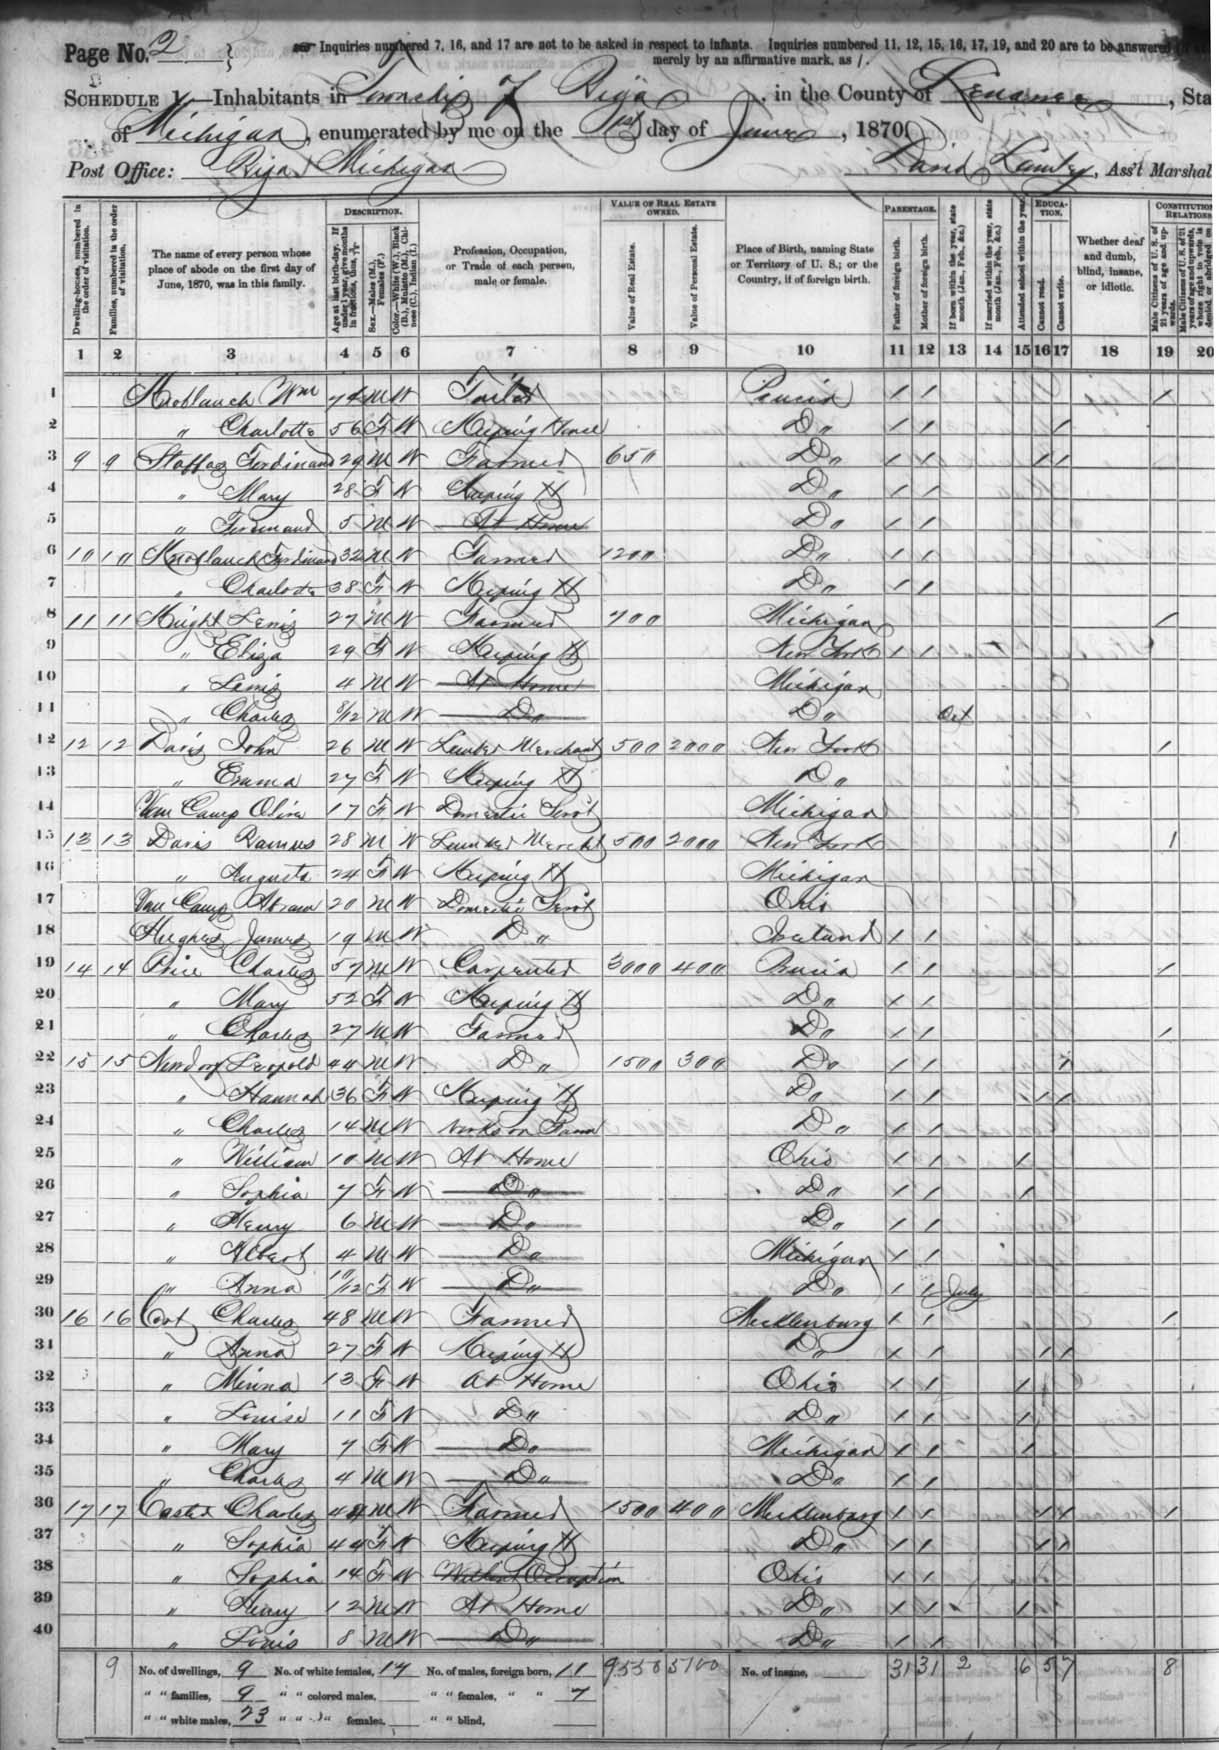 Page No. 2
Inquiries numbered 7, 16, and 17 are not to be asked in respect to infants. Inquiries numbered 11, 12, 15, 16, 17, 19, and 20 are to be answered
merely by an affirmative mark, as /.
SCHEDULE 1.—Inhabitants in Township of Riga, in the County of Lenawee, Sta
of Michigan, enumerated by me on the 1st day of June, 1870.
Post Office: Riga Michigan David Ass't Marshal
DESCRIPTION. VALUE OF REAL ESTATE OWNED. PARENTAGE. EDUCATION. CONSTITUTION RELATIONS
Dwelling-houses, numbered in the order of visitation.
Families, numbered in the order of visitation.
The name of every person whose place of abode on the first day of June, 1870, was in this family.
Age at last birth-day. If under 1 year, give months in fractions, thus, 3/12
Sex.—Males (M.), Females (F.)
Color.—White (W.), Black (B.), Mulatto (M.), Chinese (C.), Indian (I.)
Profession, Occupation, or Trade of each person, male or female.
Value of Real Estate.
Value of Personal Estate.
Place of Birth, naming State or Territory of U. S.; or the Country, if of foreign birth.
Father of foreign birth.
Mother of foreign birth.
If born within the year, state month (Jan., Feb., &c.)
If married within the year, state month (Jan., Feb., &c.)
Attended school within the year.
Cannot read.
Cannot write.
Whether deaf and dumb, blind, insane, or idiotic.
Male Citizens of U. S. of 21 years of age and upwards.
1 2 3 4 5 6 7 8 9 10 11 12 13 14 15 16 17 18 19 20
1 Knoblauch Wm 74 M W Tailor Prucia / / /
2 " Charlotte 56 F W Keeping House Do / / /
3 9 9 Ferdinand 29 M W Farmer 650 Do / / / /
4 " Mary 28 F W Keeping H Do / /
5 " Ferdinand 5 M W At Home Do / /
6 10 10 Knoblauch Ferdinand 32 M W Farmer 1200 Do / /
7 " Charlotte 38 F W Keeping H Do / /
8 11 11 Hight Lewis 27 M W Farmer 700 Michigan /
9 " Eliza 29 F W Keeping H New York / /
10 " Lewis 4 M W At Home Michigan
11 " Charles 8/12 M W Do Do Oct
12 12 12 Davis John 26 M W Lumber Merchant 500 2000 New York /
13 " Emma 27 F W Keeping H Do
14 Van Camp Olive 17 F W Domestic Servt Michigan
15 13 13 Davis 28 M W Lumber Mercht 500 2000 New York /
16 " Augusta 24 F W Keeping H Michigan
17 Van Camp Abram 20 M W Domestic Servt Ohio
18 Hughes James 19 M W Do Ireland / /
19 14 14 Price Charles 57 M W Carpenter 3000 400 Prucia / / /
20 " Mary 52 F W Keeping H Do / /
21 " Charles 27 M W Farmer Do / / /
22 15 15 Leopold 44 M W Do 1500 300 Do / / /
23 " Hannah 36 F W Keeping H Do / / / /
24 " Charles 14 M W Works on Farm Do / /
25 " William 10 M W At Home Ohio / / /
26 " Sophia 7 F W Do Do / / /
27 " Henry 6 M W Do Do / /
28 " Albert 4 M W Do Michigan / /
29 " Anna 10/12 F W Do Do / / July
30 16 16 Charles 48 M W Farmer Mecklenburg / / /
31 " Anna 27 F W Keeping H Do / / / /
32 " Minna 13 F W At Home Ohio / / /
33 " Louise 11 F W Do Do / / /
34 " Mary 7 F W Do Michigan / / /
35 " Charles 4 M W Do Do / /
36 17 17 Charles 44 M W Farmer 1500 400 Mecklenburg / / / / /
37 " Sophia 44 F W Keeping H Do / / / /
38 " Sophia 14 F W Without Occupation Ohio / /
39 " Henry 12 M W At Home Do / / /
40 " Louis 8 M W Do Do / /
9 No. of dwellings, 9 No. of white females, 17 No. of males, foreign born, 11 9550 5100 No. of insane, 31 31 2 6 5 7 8
" " families, 9 " " colored males, " " females, " " 7
" " white males, 23 " " " females, " " blind,